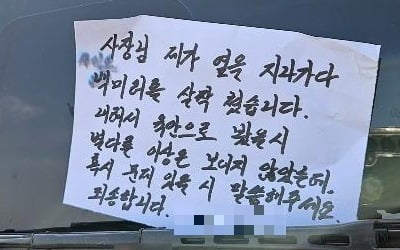 사장님 제가 옆을 지나가다
백미러를 살짝 쳤습니다.
내려서 육안으로 봤을 시
별다른 이상은 보이지 않았는데,
혹시 문제 있을 시 말씀해주세요.
죄송합니다.